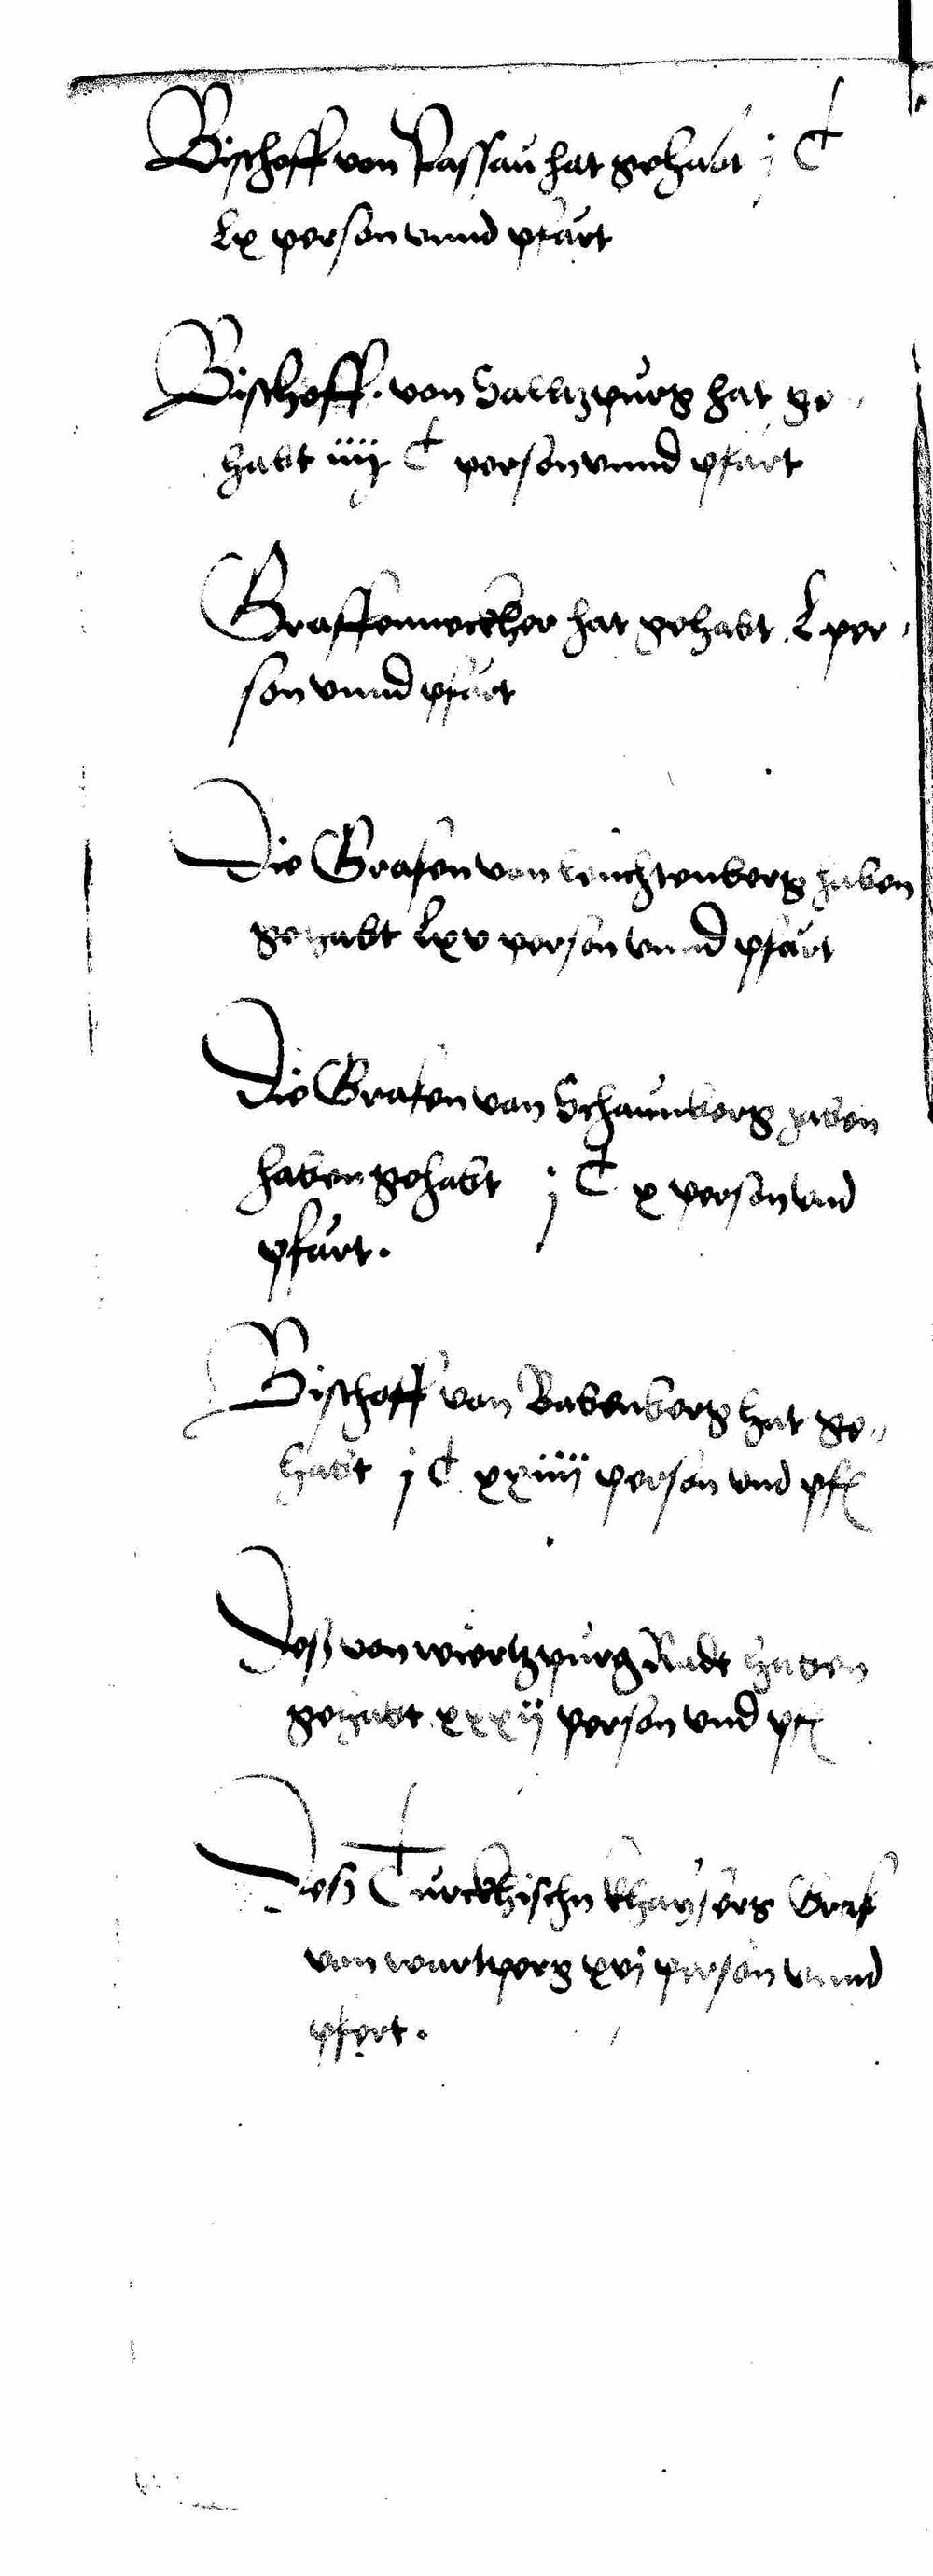 Bischoff von Passau hat gehabt j C
Lx person vnnd pfärt
Bischoff. von Salltzpurg hat ge„
habt iiij C person vnnd pfärt
Graffenneckher hat gehabt L per„
son vnnd pfärt
Die Grafen von Leuchtenberg haben
gehabt Lxv person vnnd pfärt
Die Grafen von Schaunberg haben
haben gehabt j C x person vnd
pfärt.
Bischoff von Babenberg hat ge„
habt j C xxiiij person vnd pf
Deß von wiertzpurg Radt haben
gehabt xxxij person vnd pf
Deß Turckhischn khaysers Graf
von wartperg xvj person vnnd
pfert.